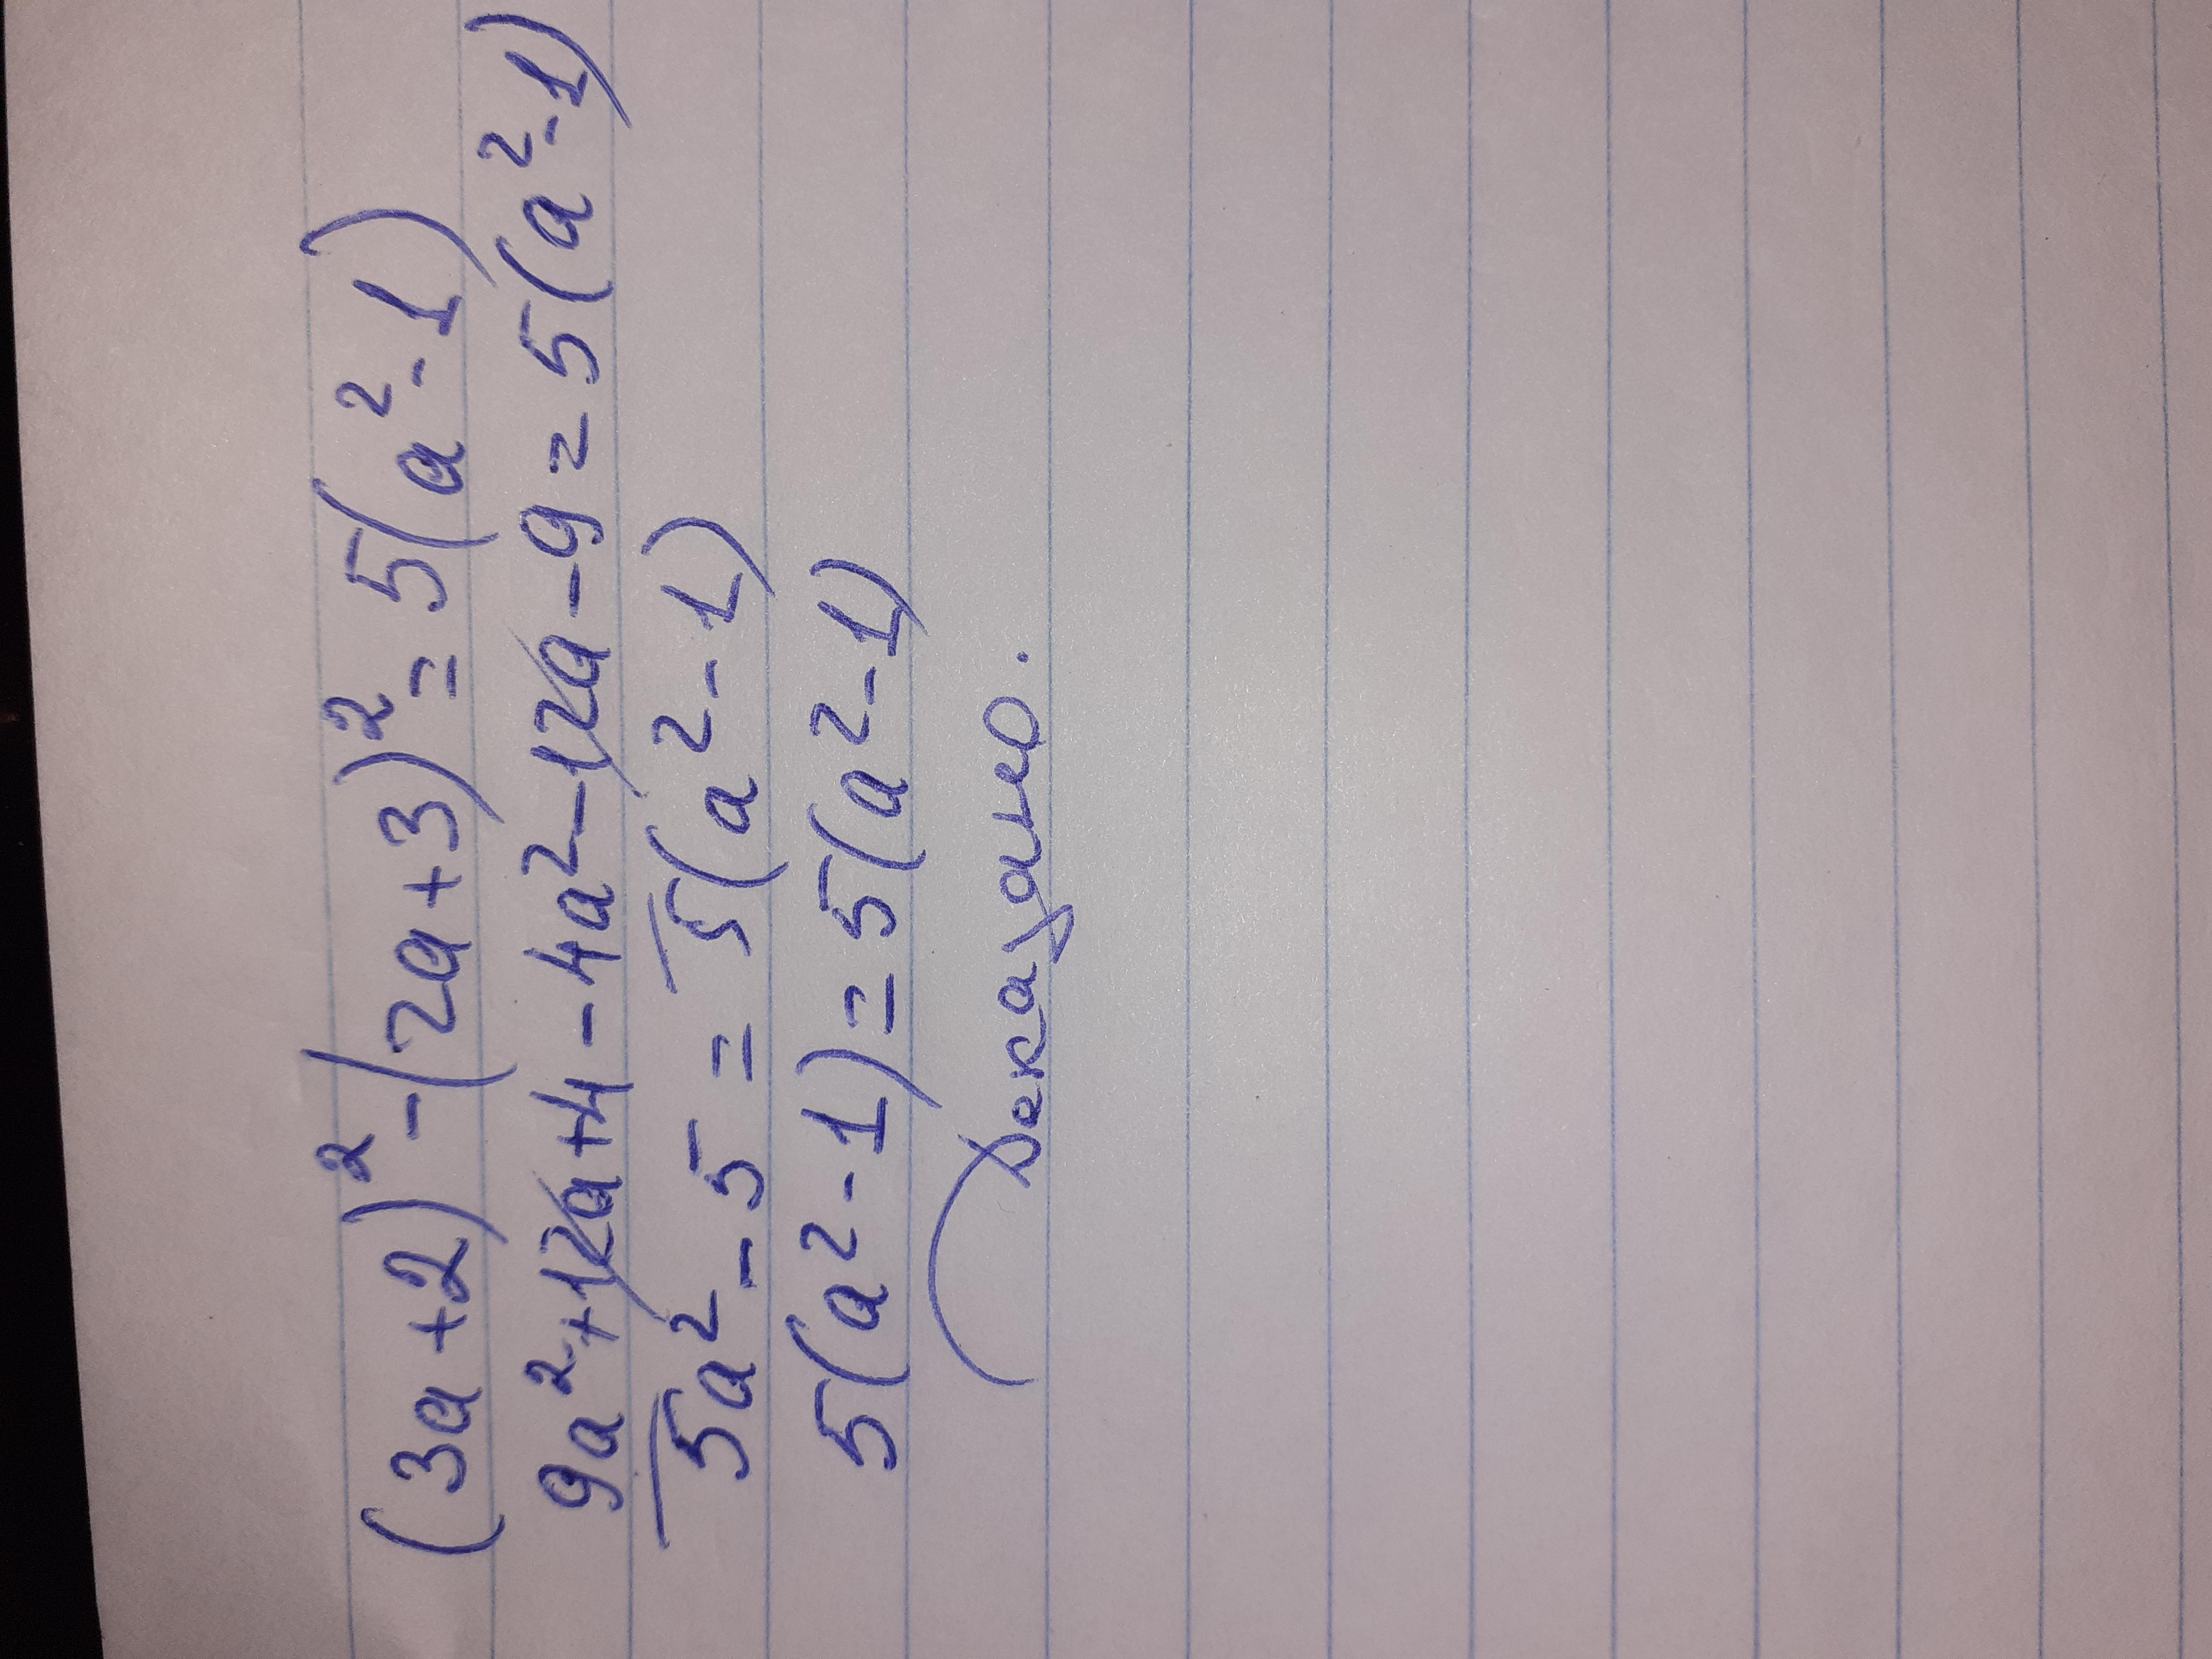 (3a+2)²-(2a+3)²=5(a²-1)
9a²+12a+4-4a²-12a-9=5(a²-1)
5a²-5=5(a²-1)
5(a²-1)=5(a²-1)
Доказано.